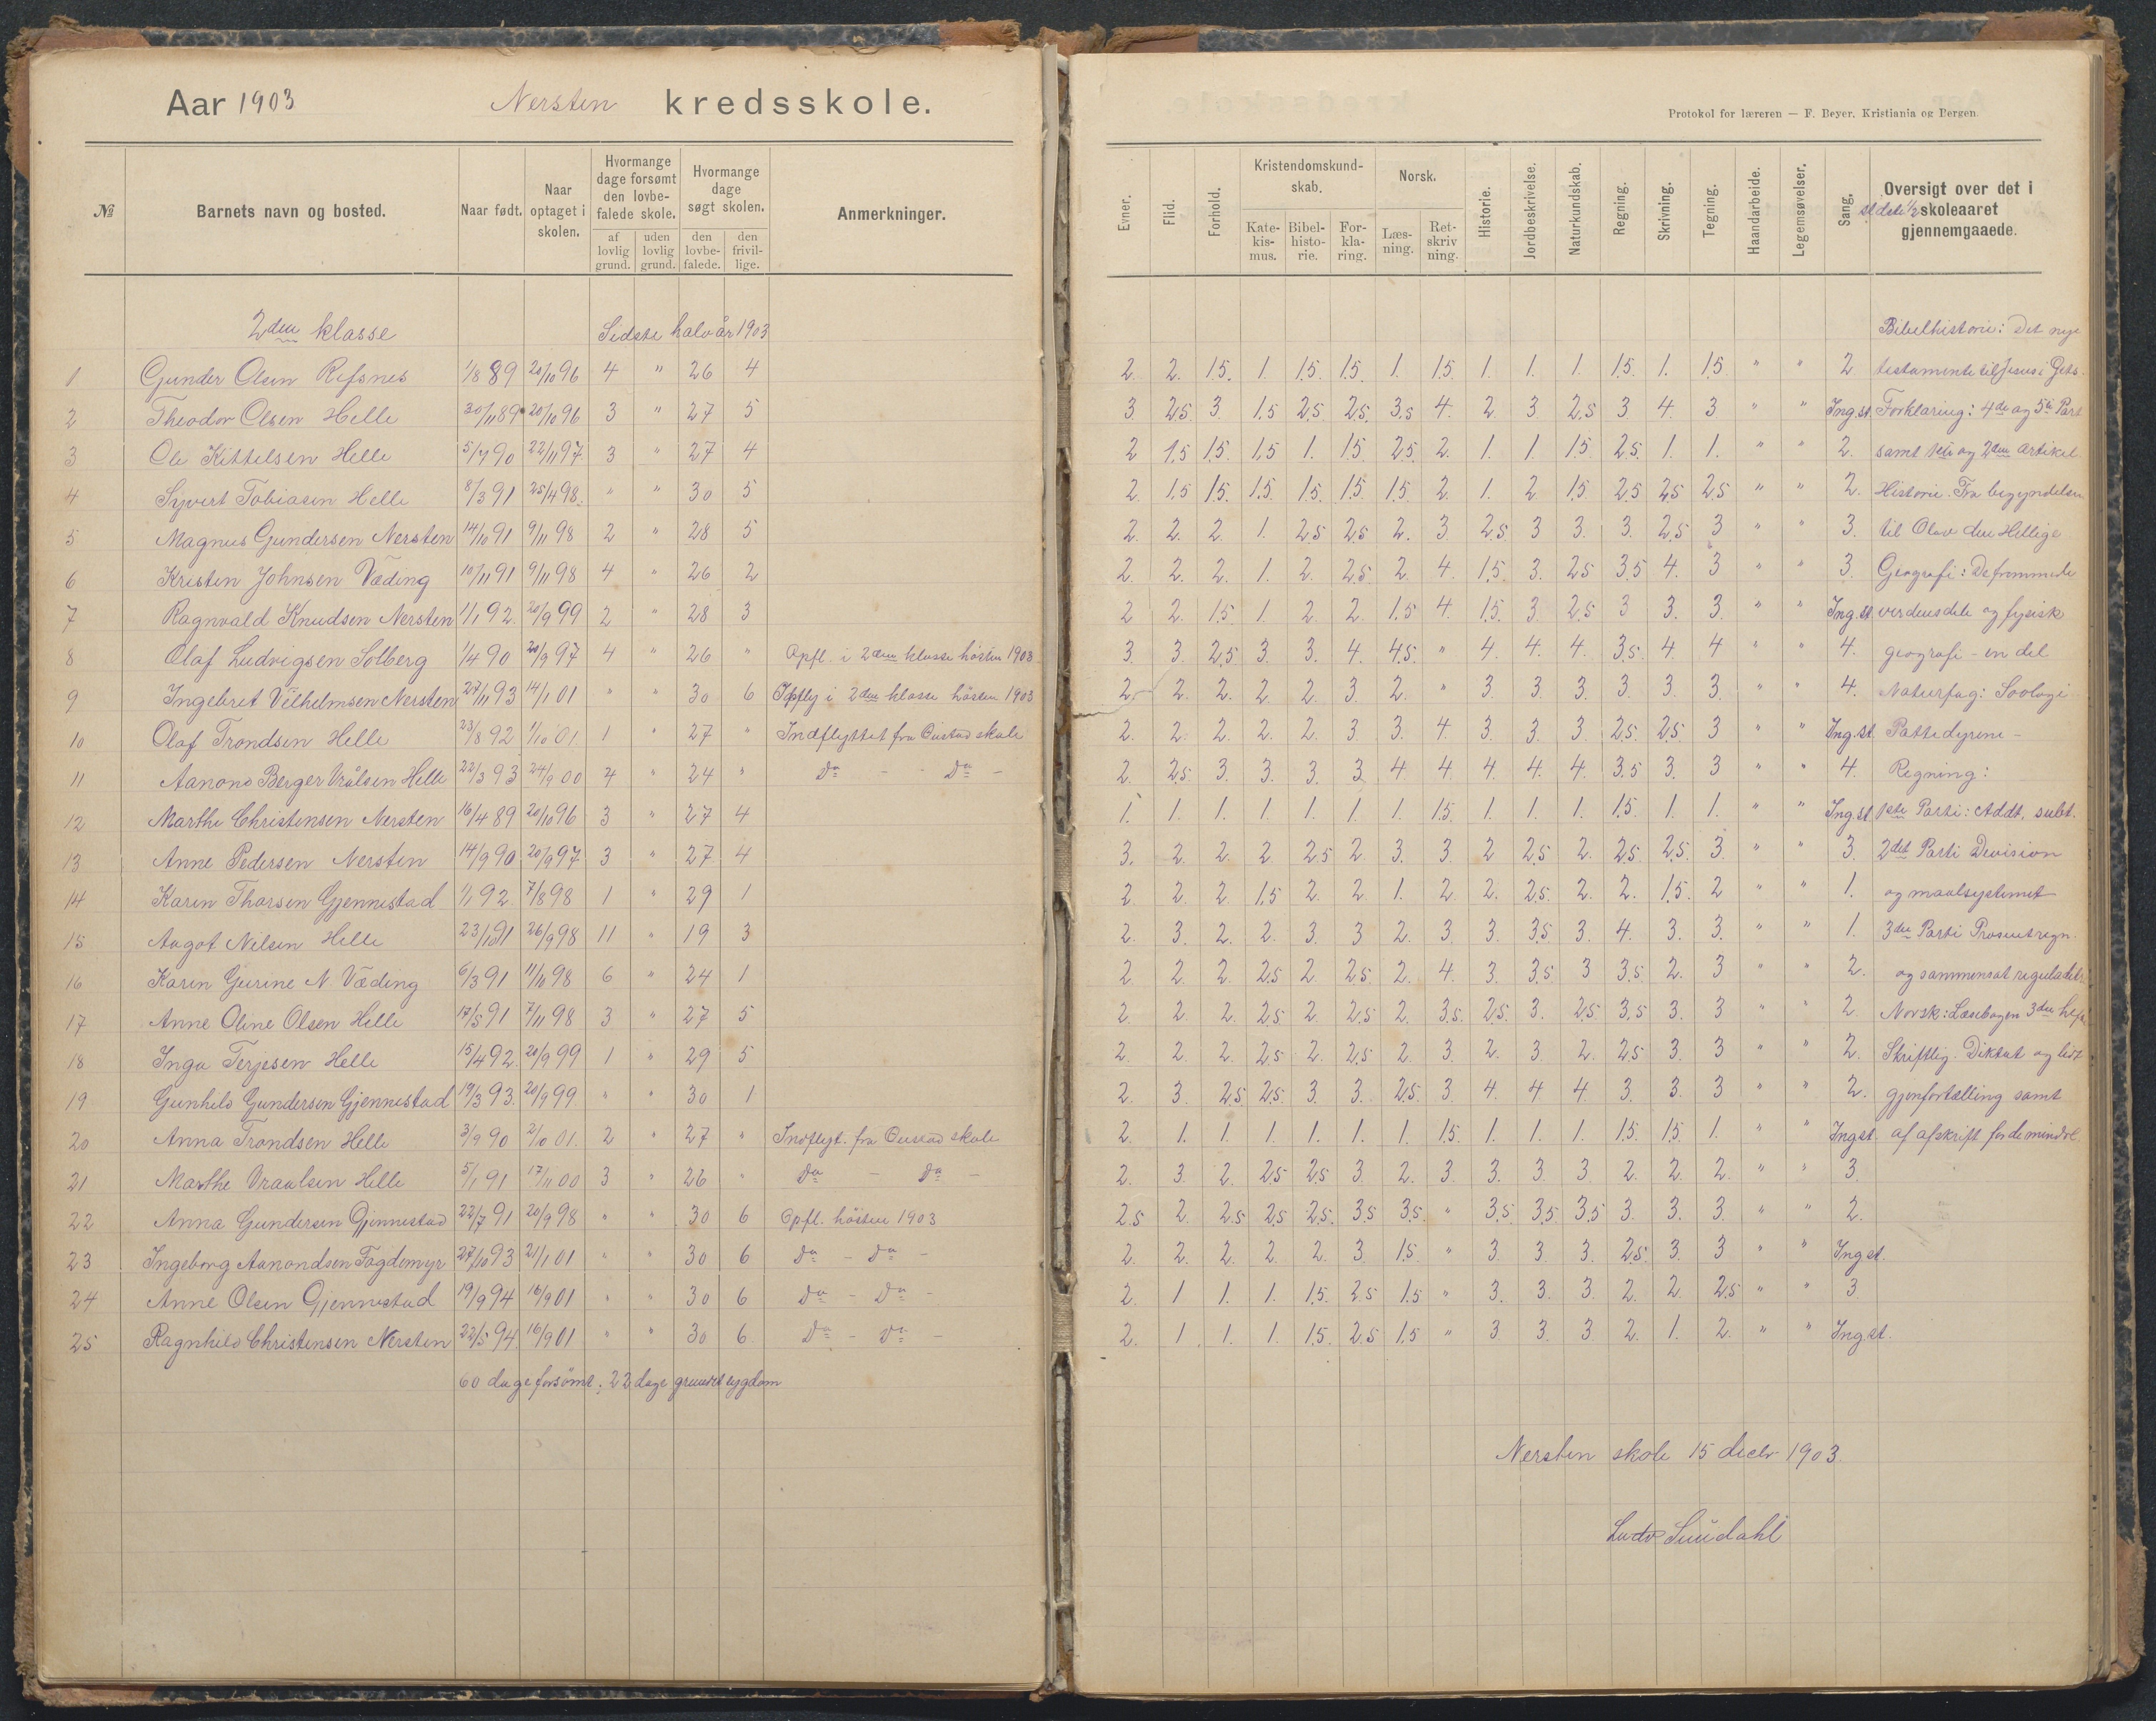 Aar 1903 Nersten kredsskole.
№ Barnets navn og bosted. Naar født. Naar optaget i skolen. Hvormange dage forsømt den lovbefalede skole. af lovlig grund. uden lovlig grund. Hvormange dage søgt skolen. den lovbefalede. den frivillige. Anmerkninger.
2den klasse Sidste halvår 1903
1 Gunder Olsen Refsnes 1/8 89 20/10 96 4 " 26 4
2 Theodor Olsen Helle 30/11 89 20/10 96 3 " 27 5
3 Ole Kittelsen Helle 5/7 90 22/11 97 3 " 27 4
4 Syvert Tobiasen Helle 8/3 91 25/4 98 " " 30 5
5 Magnus Gundersen Nersten 14/10 91 9/11 98 2 " 28 5
6 Kristen Johnsen Væding 10/11 91 9/11 98 4 " 26 2
7 Ragnvald Knudsen Nersten 1/1 92 20/9 99 2 " 28 3
8 Olaf Ludvigsen Solberg 1/4 90 20/9 97 4 " 26 " Opfl. i 2den klasse høsten 1903
9 Ingebret Vilhelmsen Nersten 27/11 93 14/1 01 " " 30 6 Opfly i 2den klasse høsten 1903
10 Olaf Trondsen Helle 23/8 92 1/10 01 1 " 27 " Indflyttet fra Oustad skole
11 Aanond Berger Vrålsen Helle 22/3 93 24/9 00 4 " 24 " Do - Do -
12 Marthe Christensen Nersten 16/4 89 20/10 96 3 " 27 4
13 Anne Pedersen Nersten 14/9 90 20/9 97 3 " 27 4
14 Karen Thorsen Gjennestad 1/1 92 7/8 98 1 " 29 1
15 Aagot Nilsen Helle 23/10 91 26/9 98 11 " 19 3
16 Karen Gurine N Væding 6/3 91 11/10 98 6 " 24 1
17 Anne Oline Olsen Helle 17/5 91 7/11 98 3 " 27 5
18 Inga Terjesen Helle 15/4 92 20/9 99 1 " 29 5
19 Gunhild Gundersen Gjennestad 19/3 93 20/9 99 " " 30 1
20 Anna Trondsen Helle 3/9 90 2/10 01 2 " 27 " Indflyt. fra Oustad skole
21 Marthe Vraalsen Helle 5/1 91 17/11 00 3 " 26 " Do - Do -
22 Anna Gundersen Gjennestad 22/7 91 20/9 98 " " 30 6 Opfl. høsten 1903
23 Ingeborg Aanondsen Fagdemyr 27/10 93 21/1 01 " " 30 6 Do - Do -
24 Anne Olsen Gjennestad 19/9 94 16/9 01 " " 30 6 Do - Do -
25 Ragnhild Christensen Nersten 22/5 94 16/9 01 " " 30 6 Do - Do -
60 dage forsømt; 22 dage grundet sygdom
Protokol for læreren — F. Beyer. Kristiania og Bergen.
Evner. Flid. Forhold. Kristendomskundskab. Katekismus. Bibelhistorie. Forklaring. Norsk. Læsning. Retskrivning. Historie. Jordbeskrivelse. Naturkundskab. Regning. Skrivning. Tegning. Haandarbeide. Legemsøvelser. Sang. Oversigt over det i sidste 1/2 skoleaaret gjennemgaaede.
Bibelhistorie: Det nye
2. 2. 1.5. 1. 1.5. 1.5. 1. 1.5. 1. 1. 1. 1.5. 1. 1.5 " " 2 testamente til Jesus i Gets.
3 2.5 3. 1.5 2.5 2.5. 3.5 4. 2 3 2.5 3 4. 3 " " Ing. st. Forklaring: 4de og 5te Part
2 1.5 1.5. 1.5 1. 1.5 2.5 2. 1. 1 1.5 2.5. 1. 1. " " 2. samt 1ste og 2den Artikel
2. 1.5 1.5. 1.5. 1.5. 1.5. 1.5. 2. 1. 2 1.5 2.5 2.5 2.5 " " 2. Historie. Fra begyndelsen
2. 2. 2. 1. 2.5 2.5 2. 3. 2.5. 3 3. 3. 2.5 3 " " 3. til Olav den Hellige
2. 2. 2. 1. 2. 2.5 2. 4. 1.5 3. 2.5 3.5 4. 3 " " 3. Geografi: De fremmede
2 2. 1.5 1. 2. 2. 1.5 4. 1.5. 3. 2.5 3 3. 3. " " Ing. st. verdensdele og fysisk
3. 3. 2.5 3. 3. 4. 4.5. " 4. 4. 4. 3.5. 4. 4 " " 4. geografi - en del
2. 2. 2. 2. 2. 3 2. " 3. 3. 3. 3. 3. 3. " " 4. Naturfag: Soologi
2. 2. 2. 2. 2. 3 3. 4. 3. 3. 3. 2.5. 2.5. 3 " " Ing. st Pattedyrene -
2. 2.5. 3. 3. 3. 3. 4. 4. 4. 4. 4. 3.5 3. 3 " " 4. Regning:
1. 1. 1. 1. 1. 1. 1. 1.5. 1. 1. 1. 1.5. 1. 1. " " Ing. st. 1ste Parti: Addt, subt.
3. 2. 2. 2 2.5 2 3. 3. 2 2.5 2. 2.5. 2.5. 3. " " 3. 2det Parti Devision
2 2. 2. 1.5 2. 2. 1. 2. 2. 2.5. 2. 2. 1.5. 2 " " 1. og maalsystemet
2. 3. 2. 2. 3. 3 2. 3. 3. 3.5 3. 4. 3. 3. " " 1. 3die Parti Prosentregn.
2 2. 2. 2.5 2. 2.5. 2. 4. 3. 3.5 3 3.5. 2. 3 " " 2. og sammensat reguladet
2. 2. 2. 2.5 2. 2.5 2. 3.5. 2.5. 3. 2.5 3.5 3. 3 " " 2. Norsk: Læsebogen 3die hefte
2. 2. 2. 2.5 2. 2.5 2. 3. 2. 3 2. 2.5 3. 3 " " 2. Skriftlig. Diktat og lidt
2. 3. 2.5 2.5. 3. 3. 2.5. 3. 4 4 4. 3. 3. 3 " " 2. gjenfortælling samt
2. 1. 1. 1. 1. 1. 1. 1.5. 1. 1. 1. 1.5. 1.5. 1. " " Ing st. af afskrift for de mindre.
2. 3. 2. 2.5 2.5 3 2. 3 3. 3 3 2. 2. 2. " " 3.
2.5 2. 2.5 2.5 2.5. 3.5 3.5. " 3.5 3.5 3.5 3. 3. 3. " " 2.
2. 2. 2. 2. 2. 3. 1.5 " 3. 3. 3. 2.5. 3. 3 " " Ing st.
2. 1 1. 1. 1.5. 2.5 1.5 " 3. 3. 3. 2. 2. 2.5 " " 3
2. 1 1. 1. 1.5. 2.5 1.5 " 3 3. 3 2. 1. 2. " " Ing. st.
Nersten skole 15 decbr 1903.